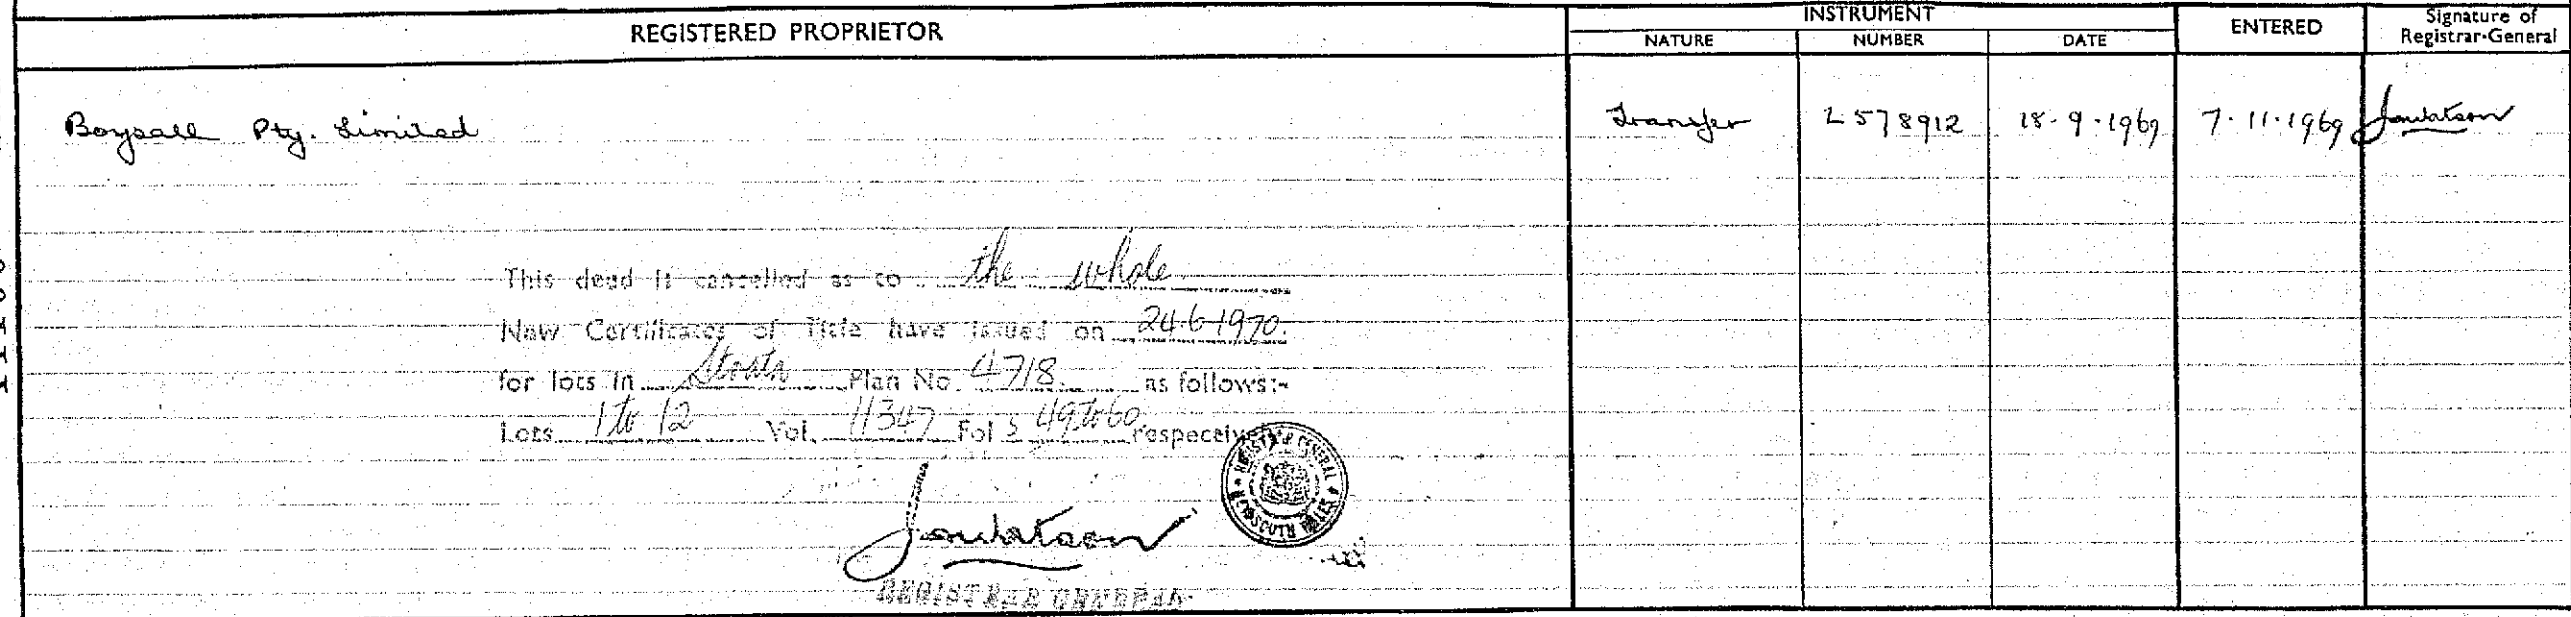 REGISTERED PROPRIETOR
INSTRUMENT
NATURE NUMBER DATE
ENTERED
Signature of
Registrar-General
Boysall Pty. Limited Transfer L578912 18-9-1969 7-11-1969 Jawatson
This deed is cancelled as to the whole
New Certificates of Title have issued on 24.6.1970.
for lots in Strata Plan No. 4718 as follows:-
Lots 1 to 12 Vol. 11347 Fol s 49 to 60 respectively
Jawatson
REGISTRAR GENERAL
REGISTRAR GENERAL
NEW SOUTH WALES